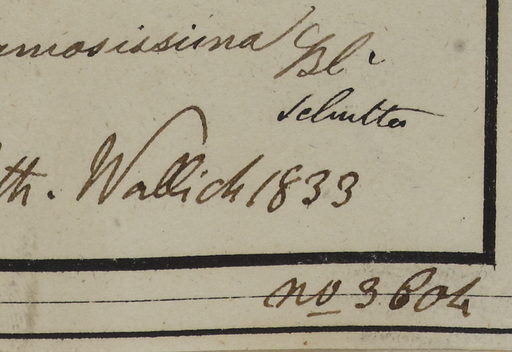 amosissima Bl.
Schultes
th. Wallich 1833
no 3604